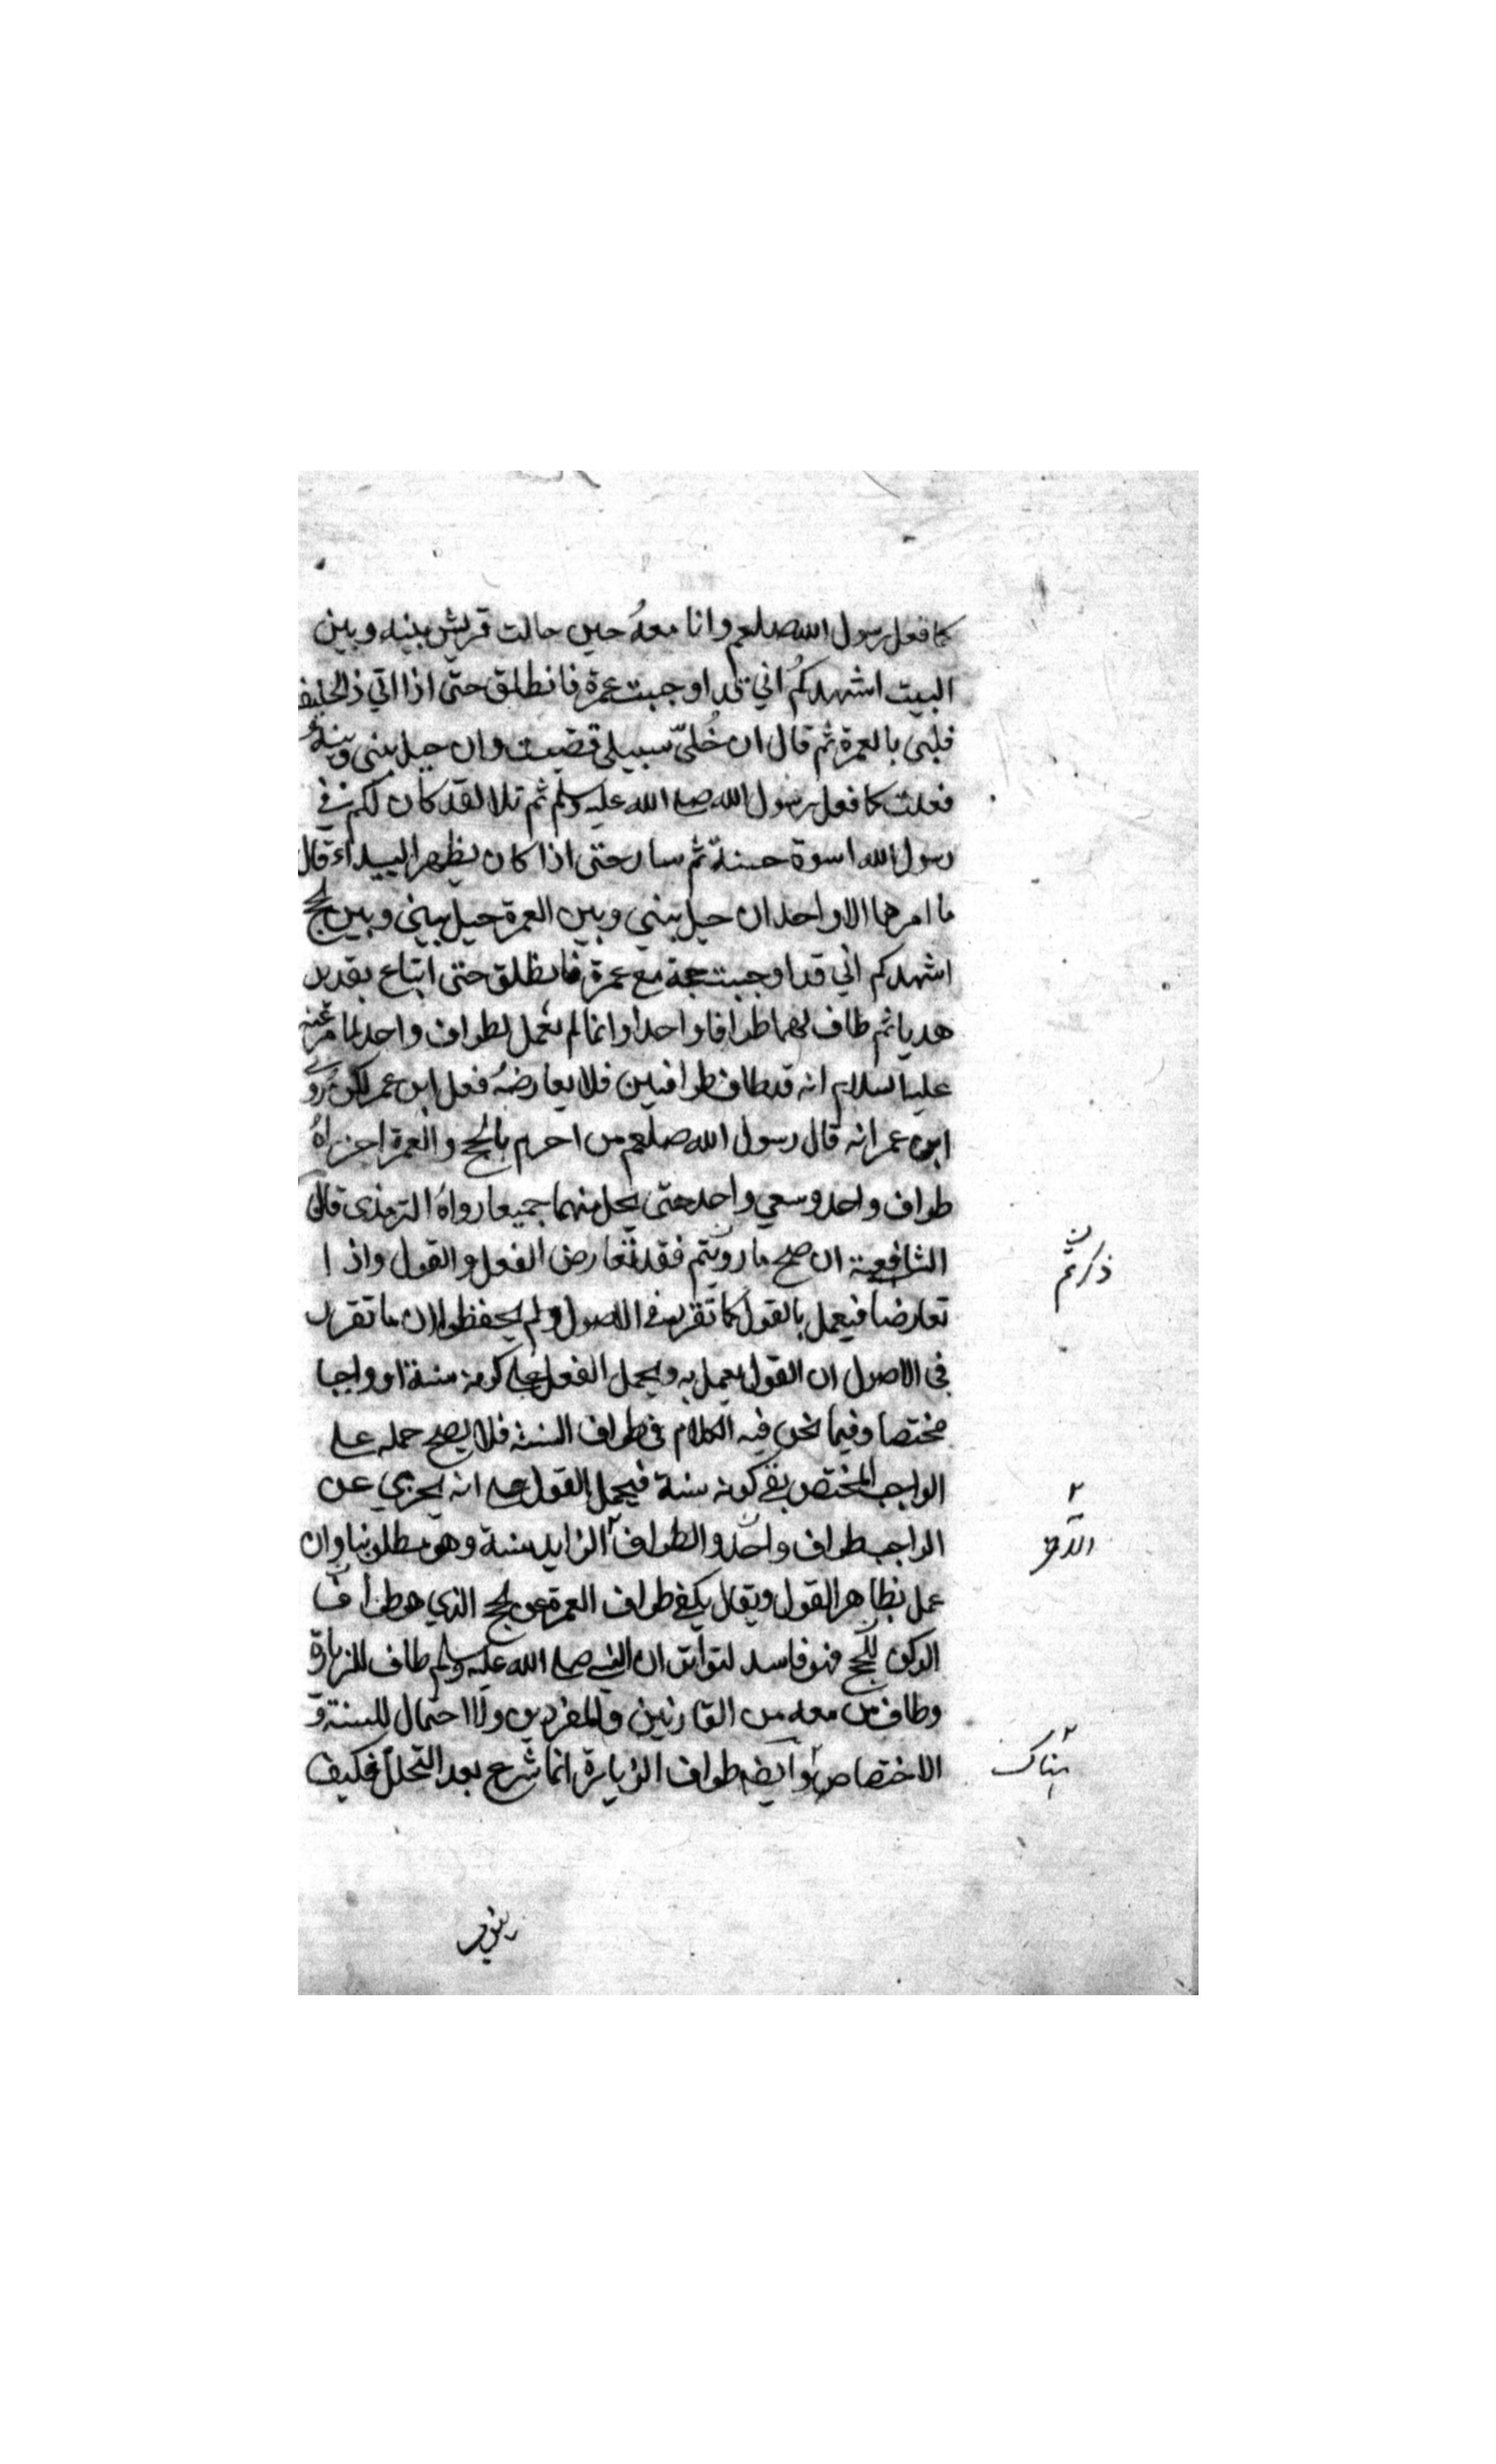 كما فعل رسول الله صلعم وانا معهُ حين حالت قريش بينه وبين
البيت اشهدكم اني قد اوجبت عمرة فانطلق حتى اذا اتي ذا الحليفة
فلبى بالعمرة ثم قال ان خُلىّ سبيلي قضيت وان حيل بيني وبينه
فعلت كما فعل رسول الله صلى الله عليه وسلم ثم تلا لقد كان لكم في
رسول الله اسوة حسنة ثم سار حتى اذا كان بظهر البيداء قال
ما امرهما الا واحد ان حيل بيني وبين العمرة حيل بيني وبين الحج
اشهدكم اني قد اوجبت حجة مع عمرة فانطلق حتى ابتاع بقديد
هديا ثم طاف لهما طوافا واحدا وانما لم نعمل بطواف واحد لما مر عنه
عليه السلام انه قد طاف طوافين فلا يعارضهُ فعل ابن عمر لكن روي
ابن عمر انه قال رسول الله صلعم من احرم بالحج والعمرة اجزاهُ
طواف واحد وسعي واحد حتى يحل منهما جميعا رواهُ الترمذى قال
الشافعية ان صح ما رويتم فقد تعارض الفعل والقول واذا
ذكرتم
تعارضا فيعمل بالقول كما تقرر في الاصول ولم يحفظوا ان ما تقرر
في الاصول ان القول يعمل به ويحمل الفعل على كونه سنة او واجبا
مختصا وفيما نحن فيه الكلام في طواف فلا يصح حمله على
الواجب المختص بقي كونه سنة فيحمل القول على انه يجزي عن
الواجب طواف واحد والطواف الزايد سنة وهو مطلوبنا وان
عمل بظاهر القول ويقال يكفي طواف العمرة عن الحج الذي هو طواف
الركن للحج فهو فاسد لتواتر ان النبي صلى الله عليه وسلم طاف للزيارة
وطاف من معه من القارنين والمفردين ولا احتمال للسنة و
الاختصاص وايضا طواف الزيارة انما شرع بعد التحلل فكيف
هناك